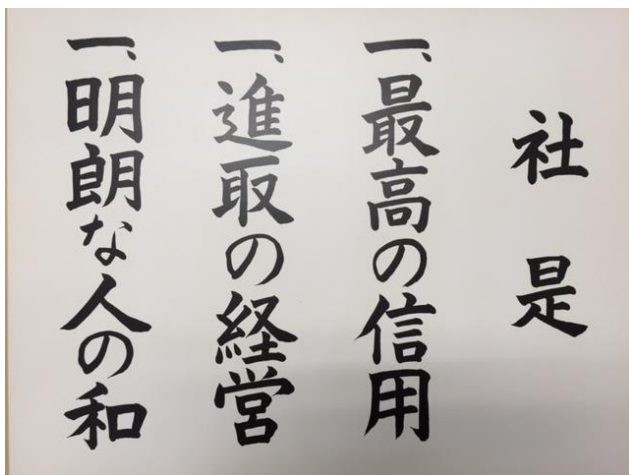 社是
一、最高の信用
一、進取の経営
一、明朗な人の和